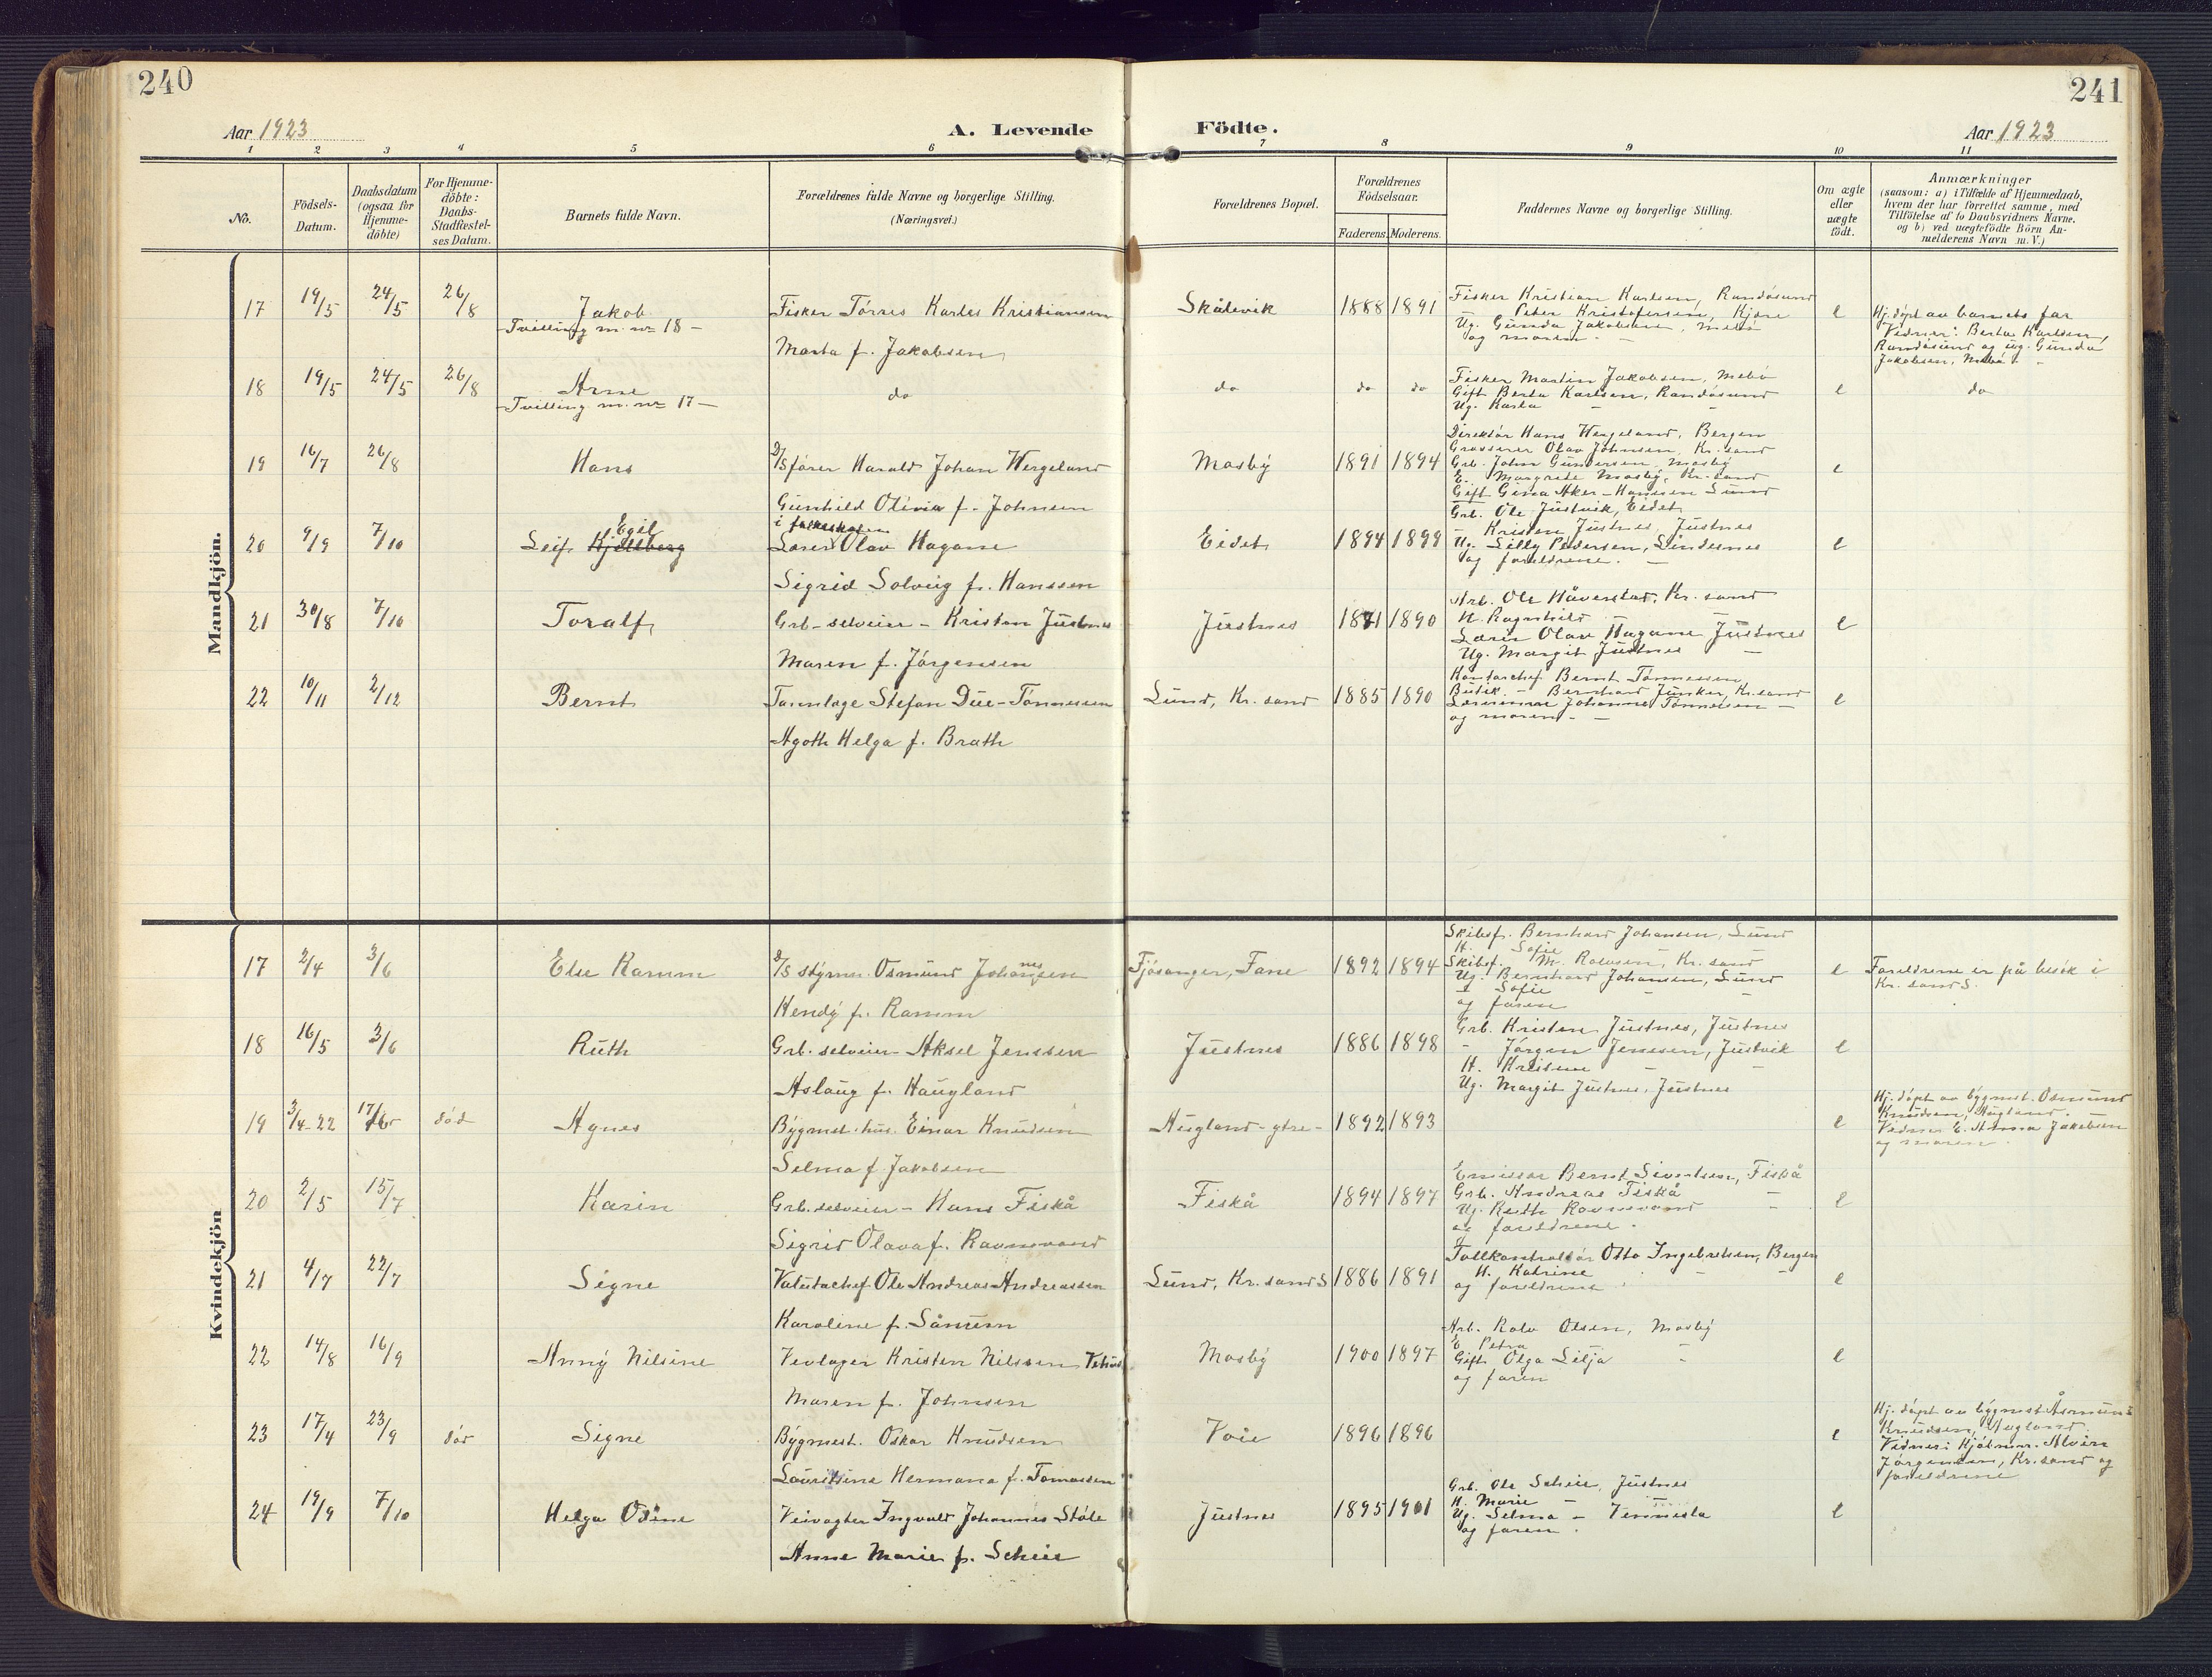 240
241
Aar 1923
A. Levende
Födte.
Aar 1923
1 2 3 4 5 6 7 8 9 10 11
No.
Födsels-
Datum.
Daabsdatum
(ogsaa for
Hjemme-
döbte)
For Hjemme-
döbte:
Daabs-
Stadfæstel-
ses Datum.
Barnets fulde Navn.
Forældrenes fulde Navne og borgerlige Stilling.
(Næringsvei.)
Forældrenes Bopæl.
Forældrenes
Födselsaar.
Faderens. Moderens.
Faddernes Navne og borgerlige Stilling.
Om ægte
eller
uægte
födt.
Anmærkninger
(saasom: a) i Tilfælde af Hjemmedaab,
hvem der har forrettet samme, med
Tilföielse af to Daabsvidners Navne,
og b) ved uægtefödte Börn An-
melderens Navn m. V.)
Mandkjön.
17 19/5 24/5 26/8 Jakob
Tvilling m. nr 18 -
Fisker Tørres Karles Kristiansen
Marta f. Jakobsen
Skålevik 1888 1891
Fisker Kristian Karlsen, Randøsund
Peter Kristofersen, Kjøre
Ug. Gunda Jakobsen, Mebø
og moren. -
e
Hj. døpt av barnets far
Vidner: Berta Karlsen,
Randøsund og ug. Gunda
Jakobsen, Mebø. -
18 19/5 24/5 26/8 Arne
Tvilling m. nr 17 -
do
do do do
Fisker Martin Jakobsen, Mebø
Gift Berta Karlsen, Randøsund
Ug. Karla - -
e do
19 16/7 26/8 Hans
D/S fører Harald Johan Hergeland
Gunhild Olivia f. Johnsen
Mosby 1891 1894
Direktør Hans Hergeland, Bergen
Grosserer Olav Johnsen, Kr.sand
Grb. John Gundersen, Mosby
E. Margrete Mosby, Kr.sand
Gift Gina Aker-Hanssen Lund
e
20 9/9 7/10 Leif Egil
i folkeskolen
Lærer Olav Hagane
Sigrid Solveig f. Hanssen
Eidet 1894 1899
Grb. Ole Justvik, Eidet
- Kristen Justnes, Justnes
Ug. Lilly Pedersen, Lindesnes
og foreldrene. -
e
21 30/8 7/10 Toralf
Grb-selveier - Kristen Justnes
Maren f. Jørgensen
Justnes 1881 1890
Arb. Ole Håverstad, Kr. sand
H. Ragnhild -
Lærer Olav Hagane Justnes
Ug. Margit Justnes -
e
22 10/11 2/12 Bernt
Tannlæge Stefan Due-Tønnessen
Agoth Helga f. Brath
Lund, Kr. sand 1885 1890
Kontorchef Bernt Tønnessen
Butik. - Bernhard Junker, Kr.sand
Lærerinne Johanne Tønnessen -
og moren - -
e
Kvindekjön
17 2/4 3/6 Else Ramm
D/S styrm. Osmund Johannesen
Hendy f. Ramm
Fjøsanger, Fane 1892 1894
Skibsf. Bernhard Johansen, Lund
H. Sofie
Skibsf. M. Rolvsen, Kr. sand
Ug. Bernhard Johansen, Lund
- Sofie - -
og faren
e
Foreldrene er på besøk i
Kr. sand S.
18 16/5 3/6 Ruth
Grb. selveier - Aksel Jenssen
Aslaug f. Haugland
Justnes 1886 1898
Grb. Kristen Justnes, Justnes
- Jørgen Jenssen, Justvik
H. Kristine - -
Ug. Margit Justnes, Justnes
e
19 3/4-22 død Agnes
Bygmst. hus. Einar Knudsen
Selma f. Jakobsen
Augland-ytre- 1892 1893
e
Hj. døpt av bygmst. Osmund
Knudsen, Augland. -
Vidner E. Anna Jakobsen
og moren.
20 2/5 15/7 Karin
Grb. selveier - Hans Fiskå
Sigrid Olava f. Ravnevand
Fiskå 1894 1897
Emissær Bernt Sivertsen, Fiskå
Grb. Andreas Fiskå -
Ug. Ruth Ravnevand -
og foreldrene.
e
21 4/7 22/7 Signe
Valutachef Ole Andreas Andreassen
Karoline f. Sånum
Lund, Kr.sand S 1886 1891
Tollkontrollør Otto Ingebretsen, Bergen
H. Katrine - -
og foreldrene
e
22 14/8 16/9 Anny Nilsine
Vevlager Kristen Nilssen
Maren f. Johnsen
Mosby 1900 1897
Arb. Rolv Olsen, Mosby
E. Petra -
Gift Olga Lilja -
og faren
e
23 17/4 23/9 død Signe
Bygmest. Oskar Knudsen
Lauritsine Hermana f. Tomassen
Voie 1896 1896
e
Hj. døpt av bygmst Åsmund
Knudsen, Augland.
Vidner: Alvin
Jørgensen, Kr.sand og
foreldrene
24 19/9 7/10 Helga Odine
Veivogter Ingvald Johannes Støle
Anne Marie f. Scheie
Justnes 1895 1901
Grb. Ole Scheie, Justnes
H. Marie -
Ug. Selma - Vennesla
og faren.
e